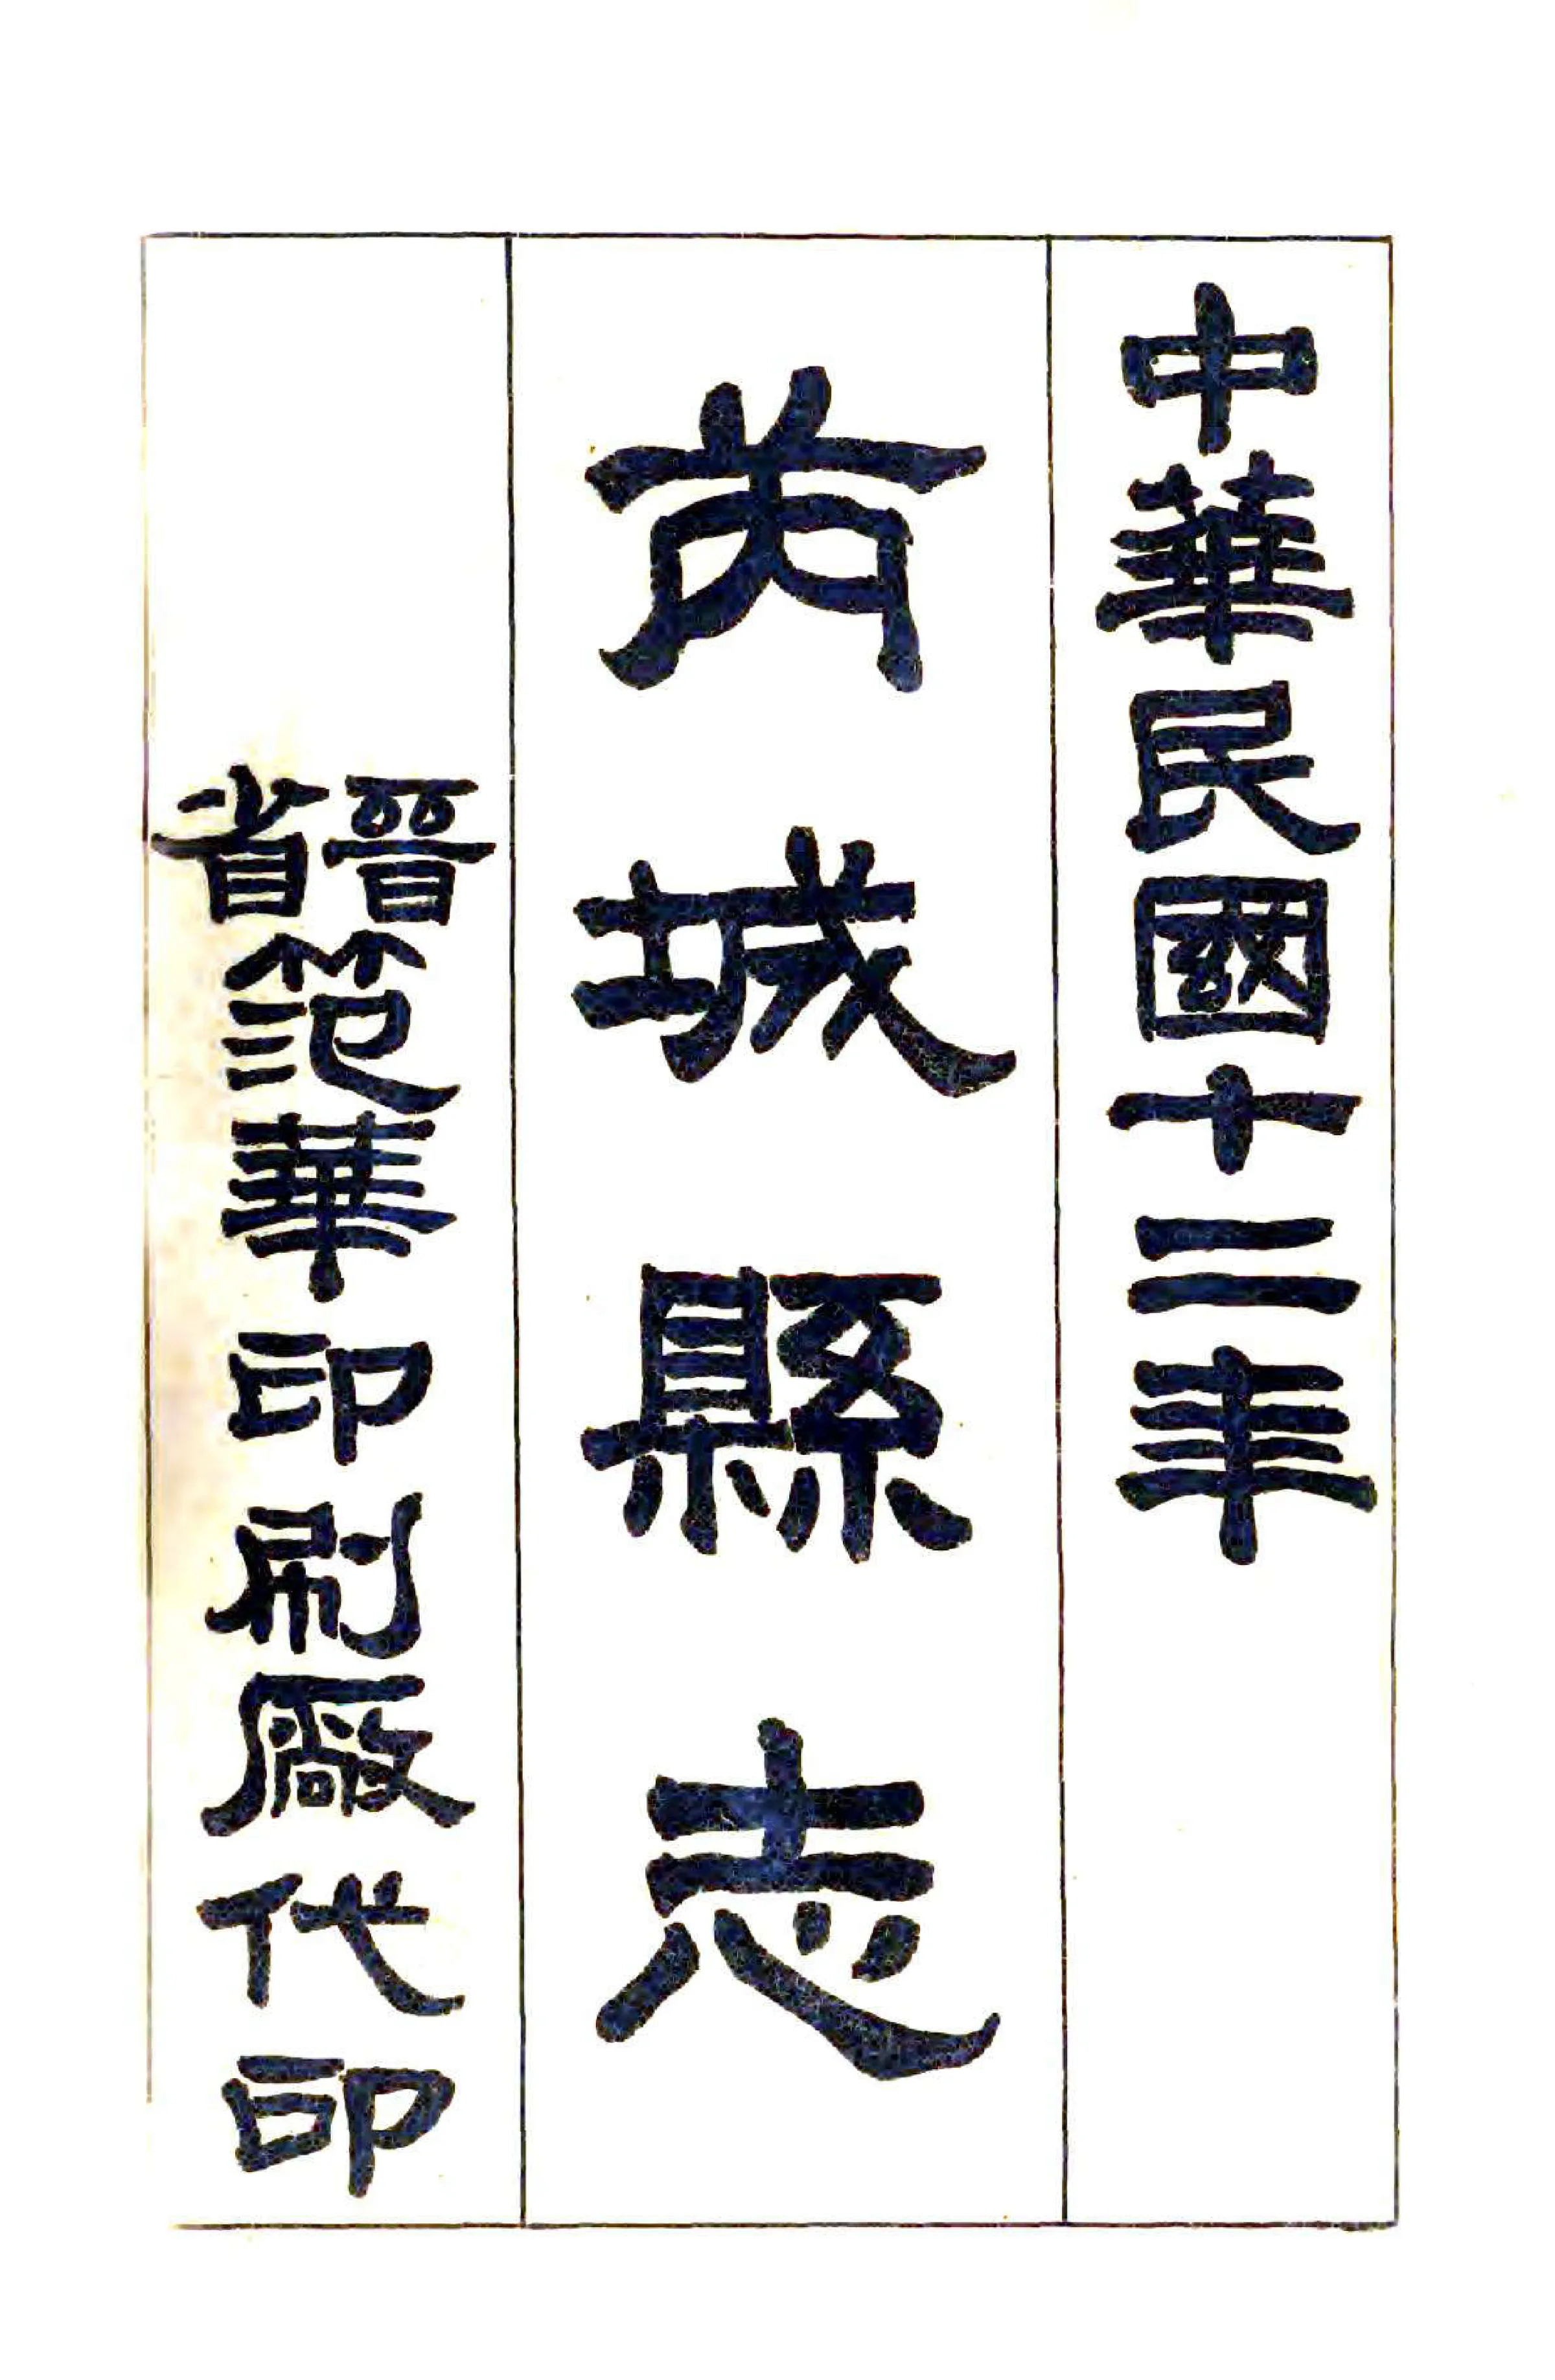 中華民國十二年
芮城縣志
晉省範華印刷廠代印